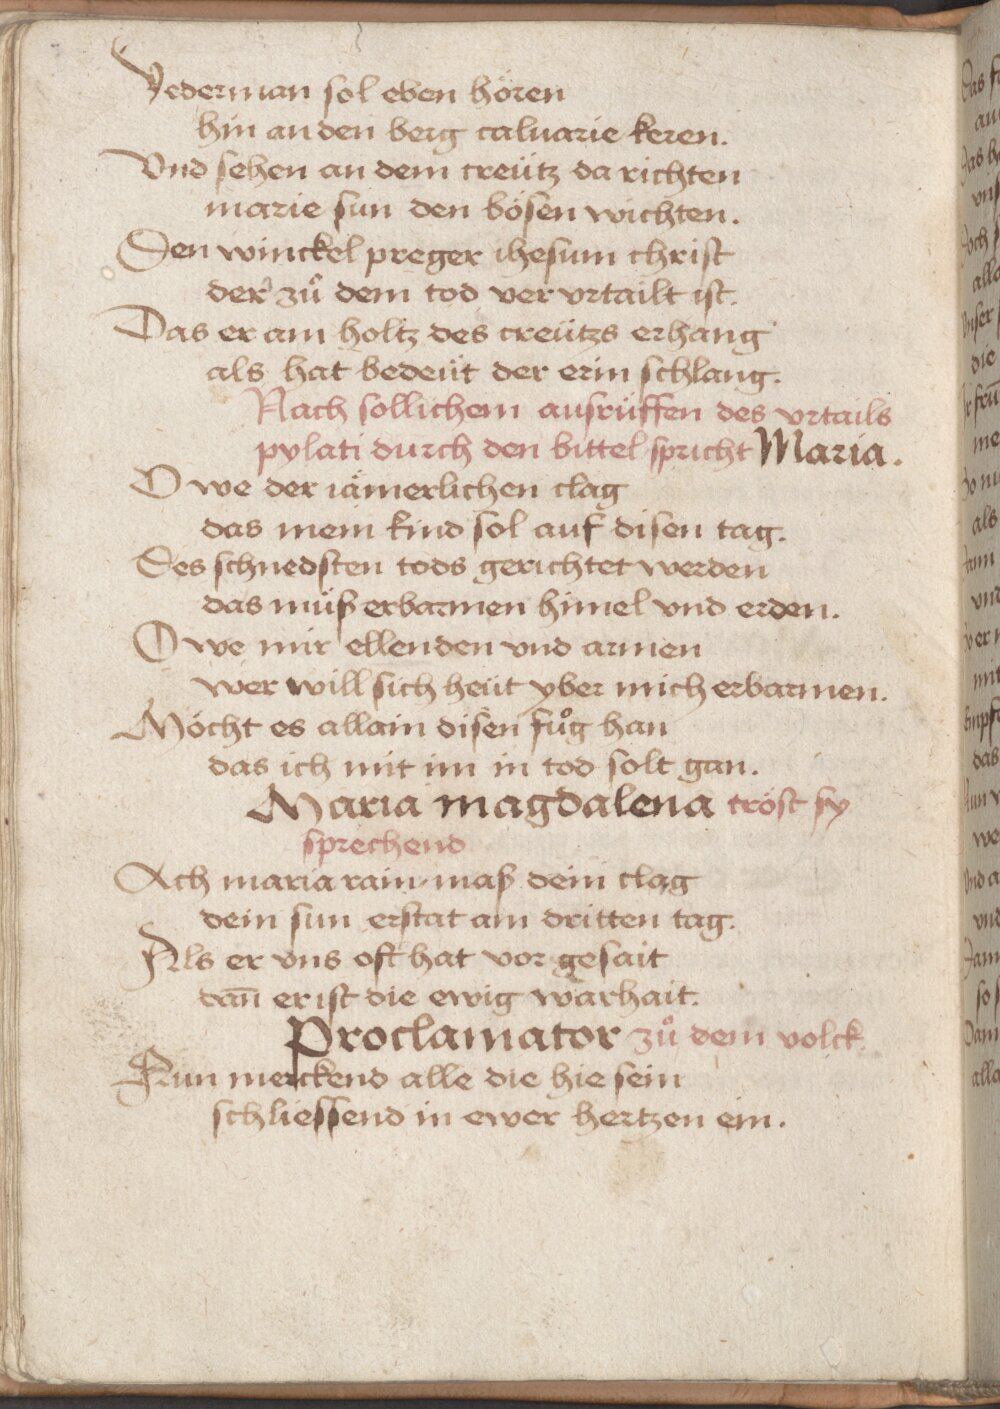 Yederman sol eben hören
hin an den berg caluarie keren.
Vnd sehen an dem creütz da richten
marie sun den bösen wichten.
Den winckel preger ihesum christ
der zů dem tod ver vrtailt ist.
Das er am holtz des creützs erhang
als hat bedeüt der erin schlang.
Nach sollichem ausrüffen des vrtails
pylati durch den bittel spricht Maria.
O we der iämerlichen clag
das mein kind sol auf disen tag.
Des schnedsten tods gerichtet werden
das müß erbarmen himel vnd erden.
O we mir ellenden vnd armen
wer will sich heüt yber mich erbarmen.
Möcht es allain disen fůg han
das ich mit im in tod solt gan.
Maria magdalena tröst sy
sprechend
Ach maria rain maß dein clag
dein sun erstat am dritten tag.
Als er vns oft hat vor gesait
dañ er ist die ewig warhait.
Proclamator zů dem volck.
Nun merckend alle die hie sein
schliessend in ewer hertzen ein.